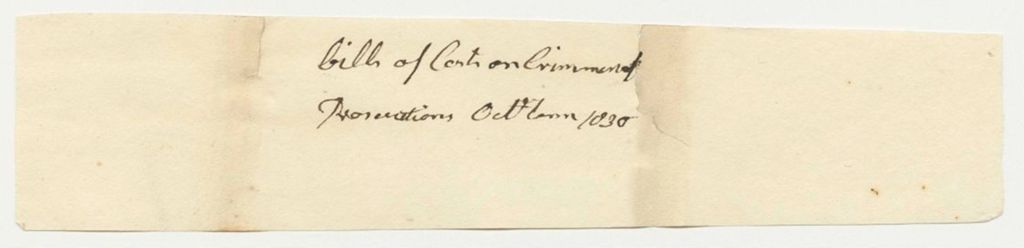 bills of Costs on Criminal
Prosecutions Octr term 1830